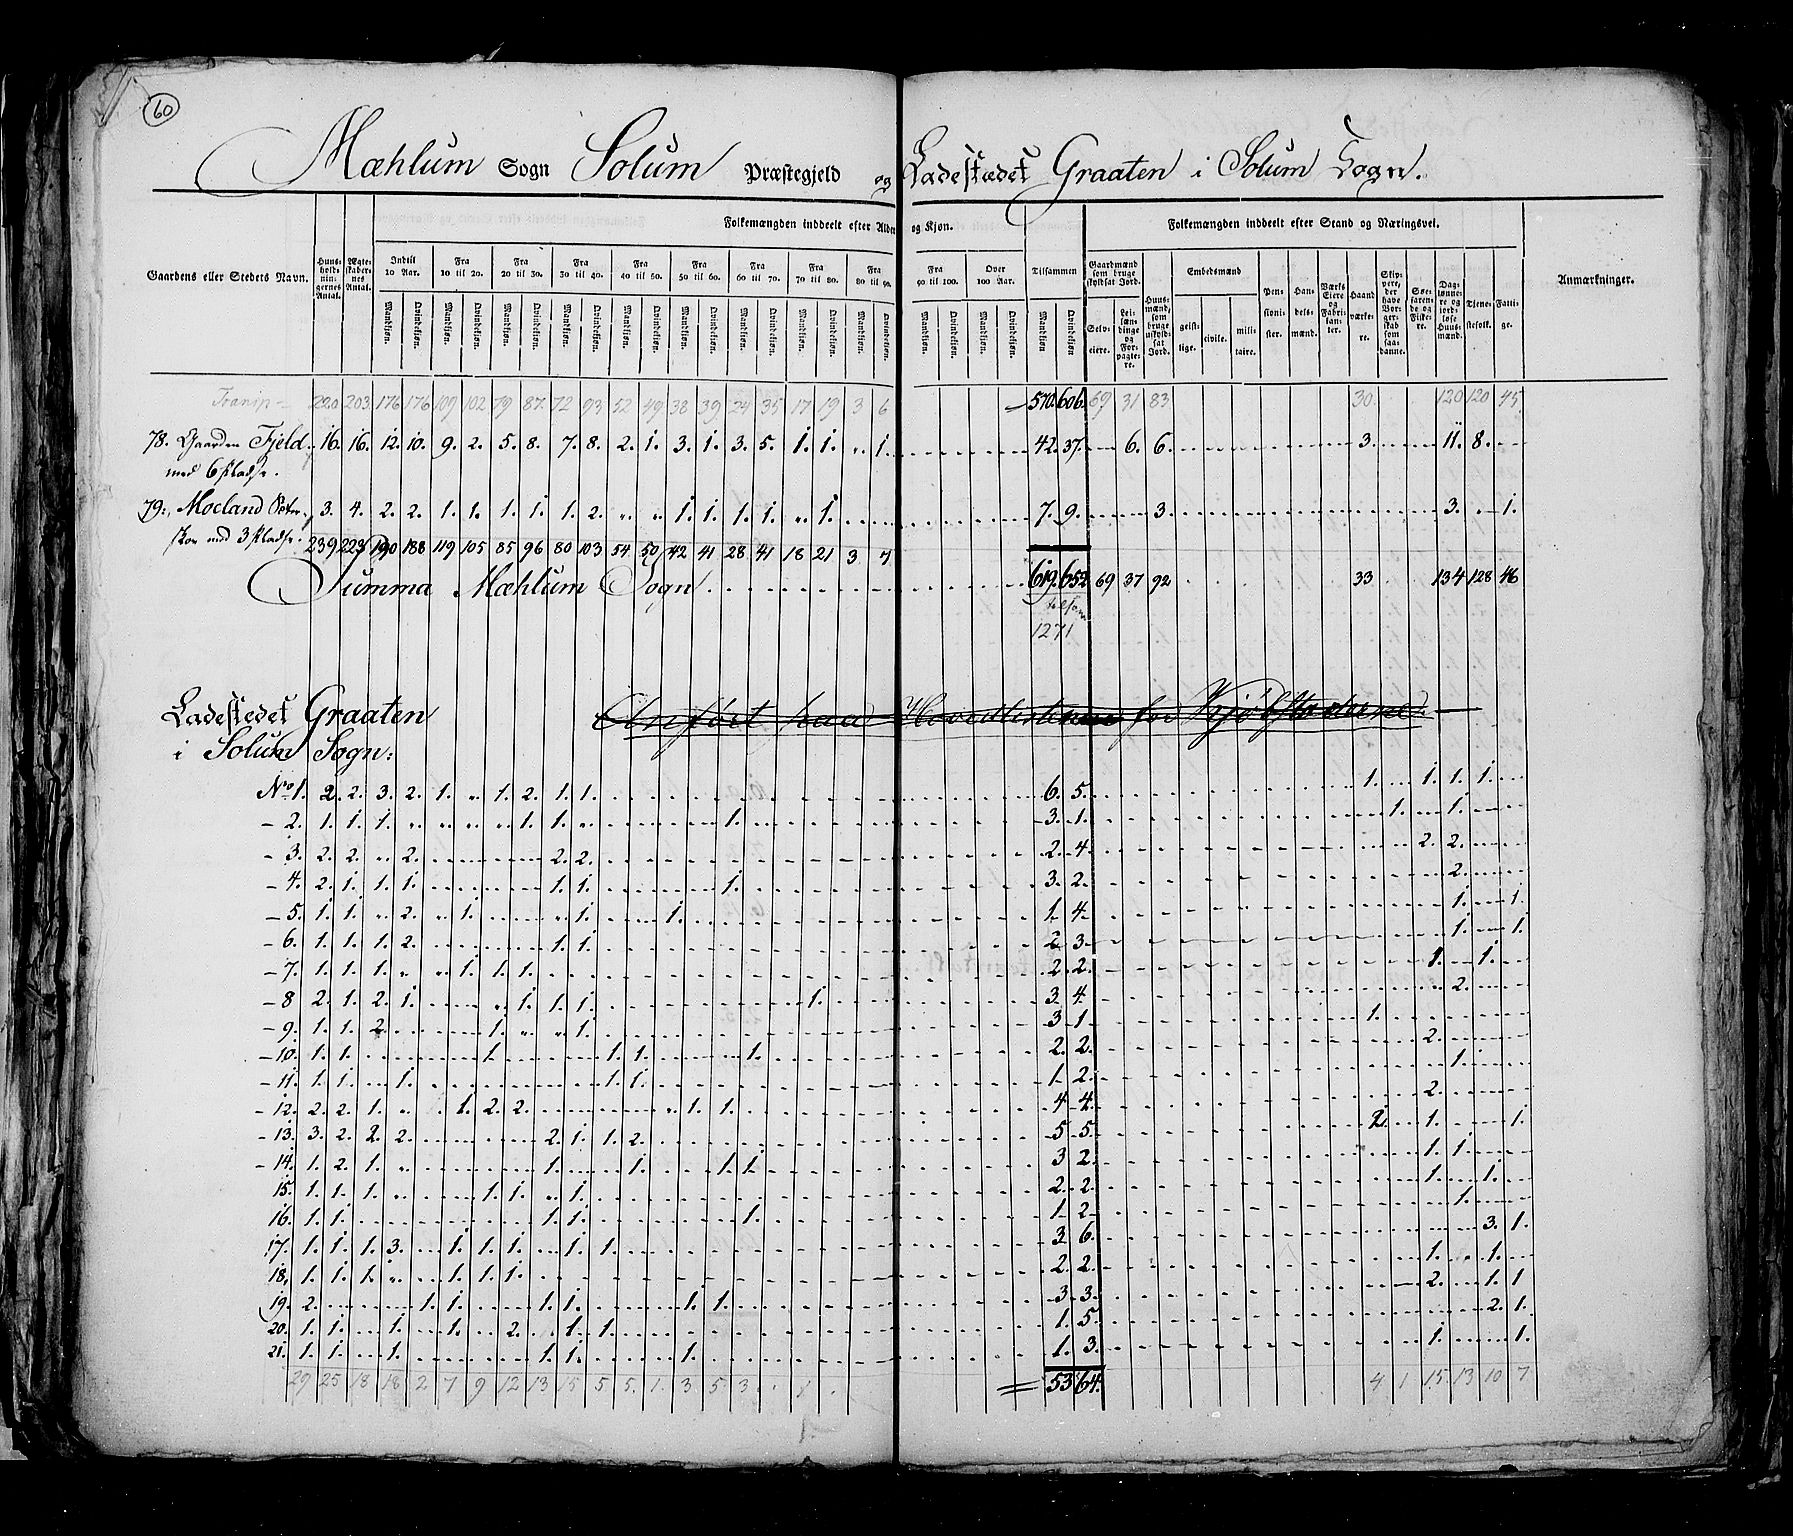 60
Mæhlum Sogn Solum Præstegjeld og Ladestedet Graaten i Solum Sogn.
Gaardens eller Stedets Navn. Huus-holdnin-gernes Antal. Ægte-skaber-nes Antal. Folkemængden inddeelt efter Alder og Kjøn. Folkemængden inddeelt efter Stand og Næringsvei. Anmærkninger.
Indtil 10 Aar. Fra 10 til 20. Fra 20 til 30. Fra 30 til 40. Fra 40 til 50. Fra 50 til 60. Fra 60 til 70. Fra 70 til 80. Fra 80 til 90. Fra 90 til 100. Over 100 Aar. Tilsammen
Mandkjøn. Qvindekjøn.
Gaardmænd som bruge skyldsat Jord. Selveiere. Leilændinge og Forpagtere. Huusmænd, som bruge uskyldsat Jord. Embedsmænd geistlige. civile. militaire. Pensionister. Handelsmænd. Værks Eiere og Fabrikanter. Haandværkere. Skippere, der have Borgerskab som saadanne. Søefarende og Fiskere. Daglønnere og jordløse Huusmænd. Tjenestefolk. Fattige.
Transp 220 203 176 176 109 102 79 87 72 93 52 49 38 39 24 35 17 19 3 6 570 606 69 31 83 30 120 120 45
78. Gaarden Fjeld 16. 16. 12. 10. 9. 2. 5. 8. 7. 8. 2. 1. 3. 1. 3. 5. 1. 1. " 1. 42. 37. 6. 6. 3. 11. 8.
med 6 Pladse.
79. Moeland 3. 4. 2. 2. 1. 1. 1. 1. 1. 2. " " 1. 1. 1. 1. " 1. 7. 9. 3. 3. 1.
med 3 Pladse. 239 223 190 188 119 105 85 96 80 103 54 50 42 41 28 41 18 21 3 7
Summa Mæhlum Sogn 619 652 69 37 92 33 134 128 46
tilsam
1271
Ladestedet Graaten Anført paa Hovedlisterne for Kjøbstæderne.
i Solum Sogn:
No 1. 2. 2. 3. 2. 1. " 1. 2. 1. 1. 6. 5. 1. 1. 1. 1.
2. 1. 1. 1. " " " " 1. 1. " 1. 3. 1. 1. 1.
3. 2. 2. " 2. 2. 2. 2. 4. 2. 2.
4. 2. 1. 1. 1. 1. 1. 1. 3. 2. 2.
5. 1. 1. " 2. " 1. " 1. 1. 1. 4. 1. 1.
6. 1. 1. 1. 2. 1. 1. 2. 3. 1. 1.
7. 1. 1. 1. " " 1. 1. 1. 2. 2. 1. 1.
8 2. 1. 2. 1. " 1. 1. 1. 1. 3. 4. 2.
9. 1. 1. 2. 1. " " 1. 3. 1. 1.
10. 1. 1. 1. 1. 1. 1. 2. 2. 2.
11. 1. 1. 1. 1. 1. 1. 2. 1.
12. 2. 2. 1. " 1. 2. 2. " 1. 1. 4. 4. 2.
13. 3. 2. 2. 2. 2. 1. 1. 2. 5. 5. 2. 1. 1.
14. 1. 2. 1. " 1. 1. 1. 1. 3 2. 1. 1.
15. 1. 1. 1. " 1. 1. " 1. 2. 2. 1. 1.
16. 1. 1. 1. 1. 1. 1. 2. 1.
17. 1. 1. 1. 3. 1. 1. 1. 1. 1. 3 6. 3. 1.
18. 1. 1. 1. " 1. 1. 1. 2. 2. 1. 1.
19. 2. 1. 1. 1. 1. 1. 1. 3. 3. 2. 1. 1
20. 1. 1. 1. 1. 2. 1. 1. 1. 5. 2. 1.
21. 1. 1. 1. 1. 1. 1. 1. 3. 1. 1.
29 25 18 18 2 7 9 12 13 15 5 5 1 3 5 3 1 53 64. 4 1 15 13 10 7